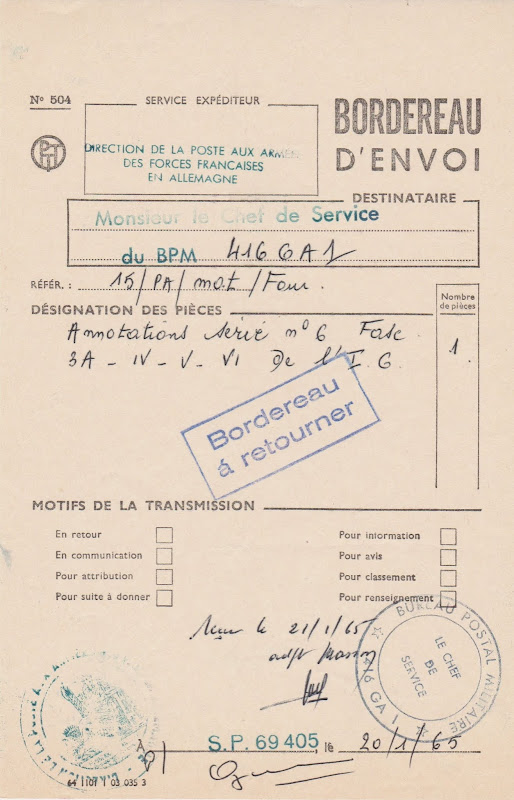 N° 504
SERVICE EXPÉDITEUR
BORDEREAU
D'ENVOI
PTT
DIRECTION DE LA POSTE AUX ARMEES
DES FORCES FRANCAISES
EN ALLEMAGNE
DESTINATAIRE
Monsieur le Chef de Service
du BPM 416 GA1
RÉFÉR. : 15/PA/mat/Four.
DÉSIGNATION DES PIÈCES
Nombre
de pièces
Annotations série n° 6 Fasc
1
3A - IV - V - VI De l'I G
Bordereau
á retourner
MOTIFS DE LA TRANSMISSION
En retour
Pour information
En communication
Pour avis
Pour attribution
Pour classement
Pour suite à donner
Pour renseignement
le 21/1/65
adjt
BUREAU POSTAL MILITAIRE
416 GA 1
LE CHEF
DE
SERVICE
A
S.P. 69 405, le 20/1/65
64 1107 1 03 035 3